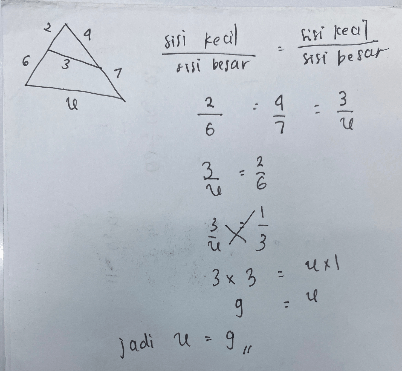 2 4
6 3 7
u
sisi kecil / sisi besar = sisi kecil / sisi besar
2/6 = 4/7 = 3/u
3/u = 2/6
3/u = 1/3
3 x 3 = u x 1
9 = u
jadi u = 9,,